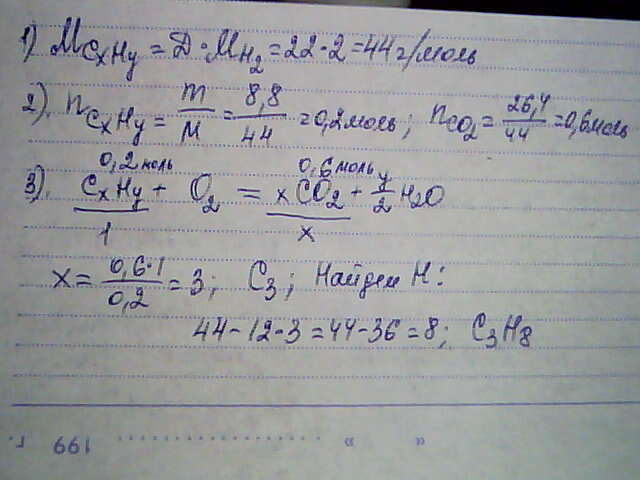 1) MCxHy = D·MH2 = 22·2 = 44 г/моль
2). nCxHy = m/M = 8,8/44 = 0,2 моль; nCO2 = 26,4/44 = 0,6 моль
0,2 моль 0,6 моль
3). CxHy + O2 = xCO2 + y/2 H2O
1 x
x = 0,6·1/0,2 = 3; C3; Найдем H:
44-12·3 = 44-36 = 8; C3H8
199 г.
" "